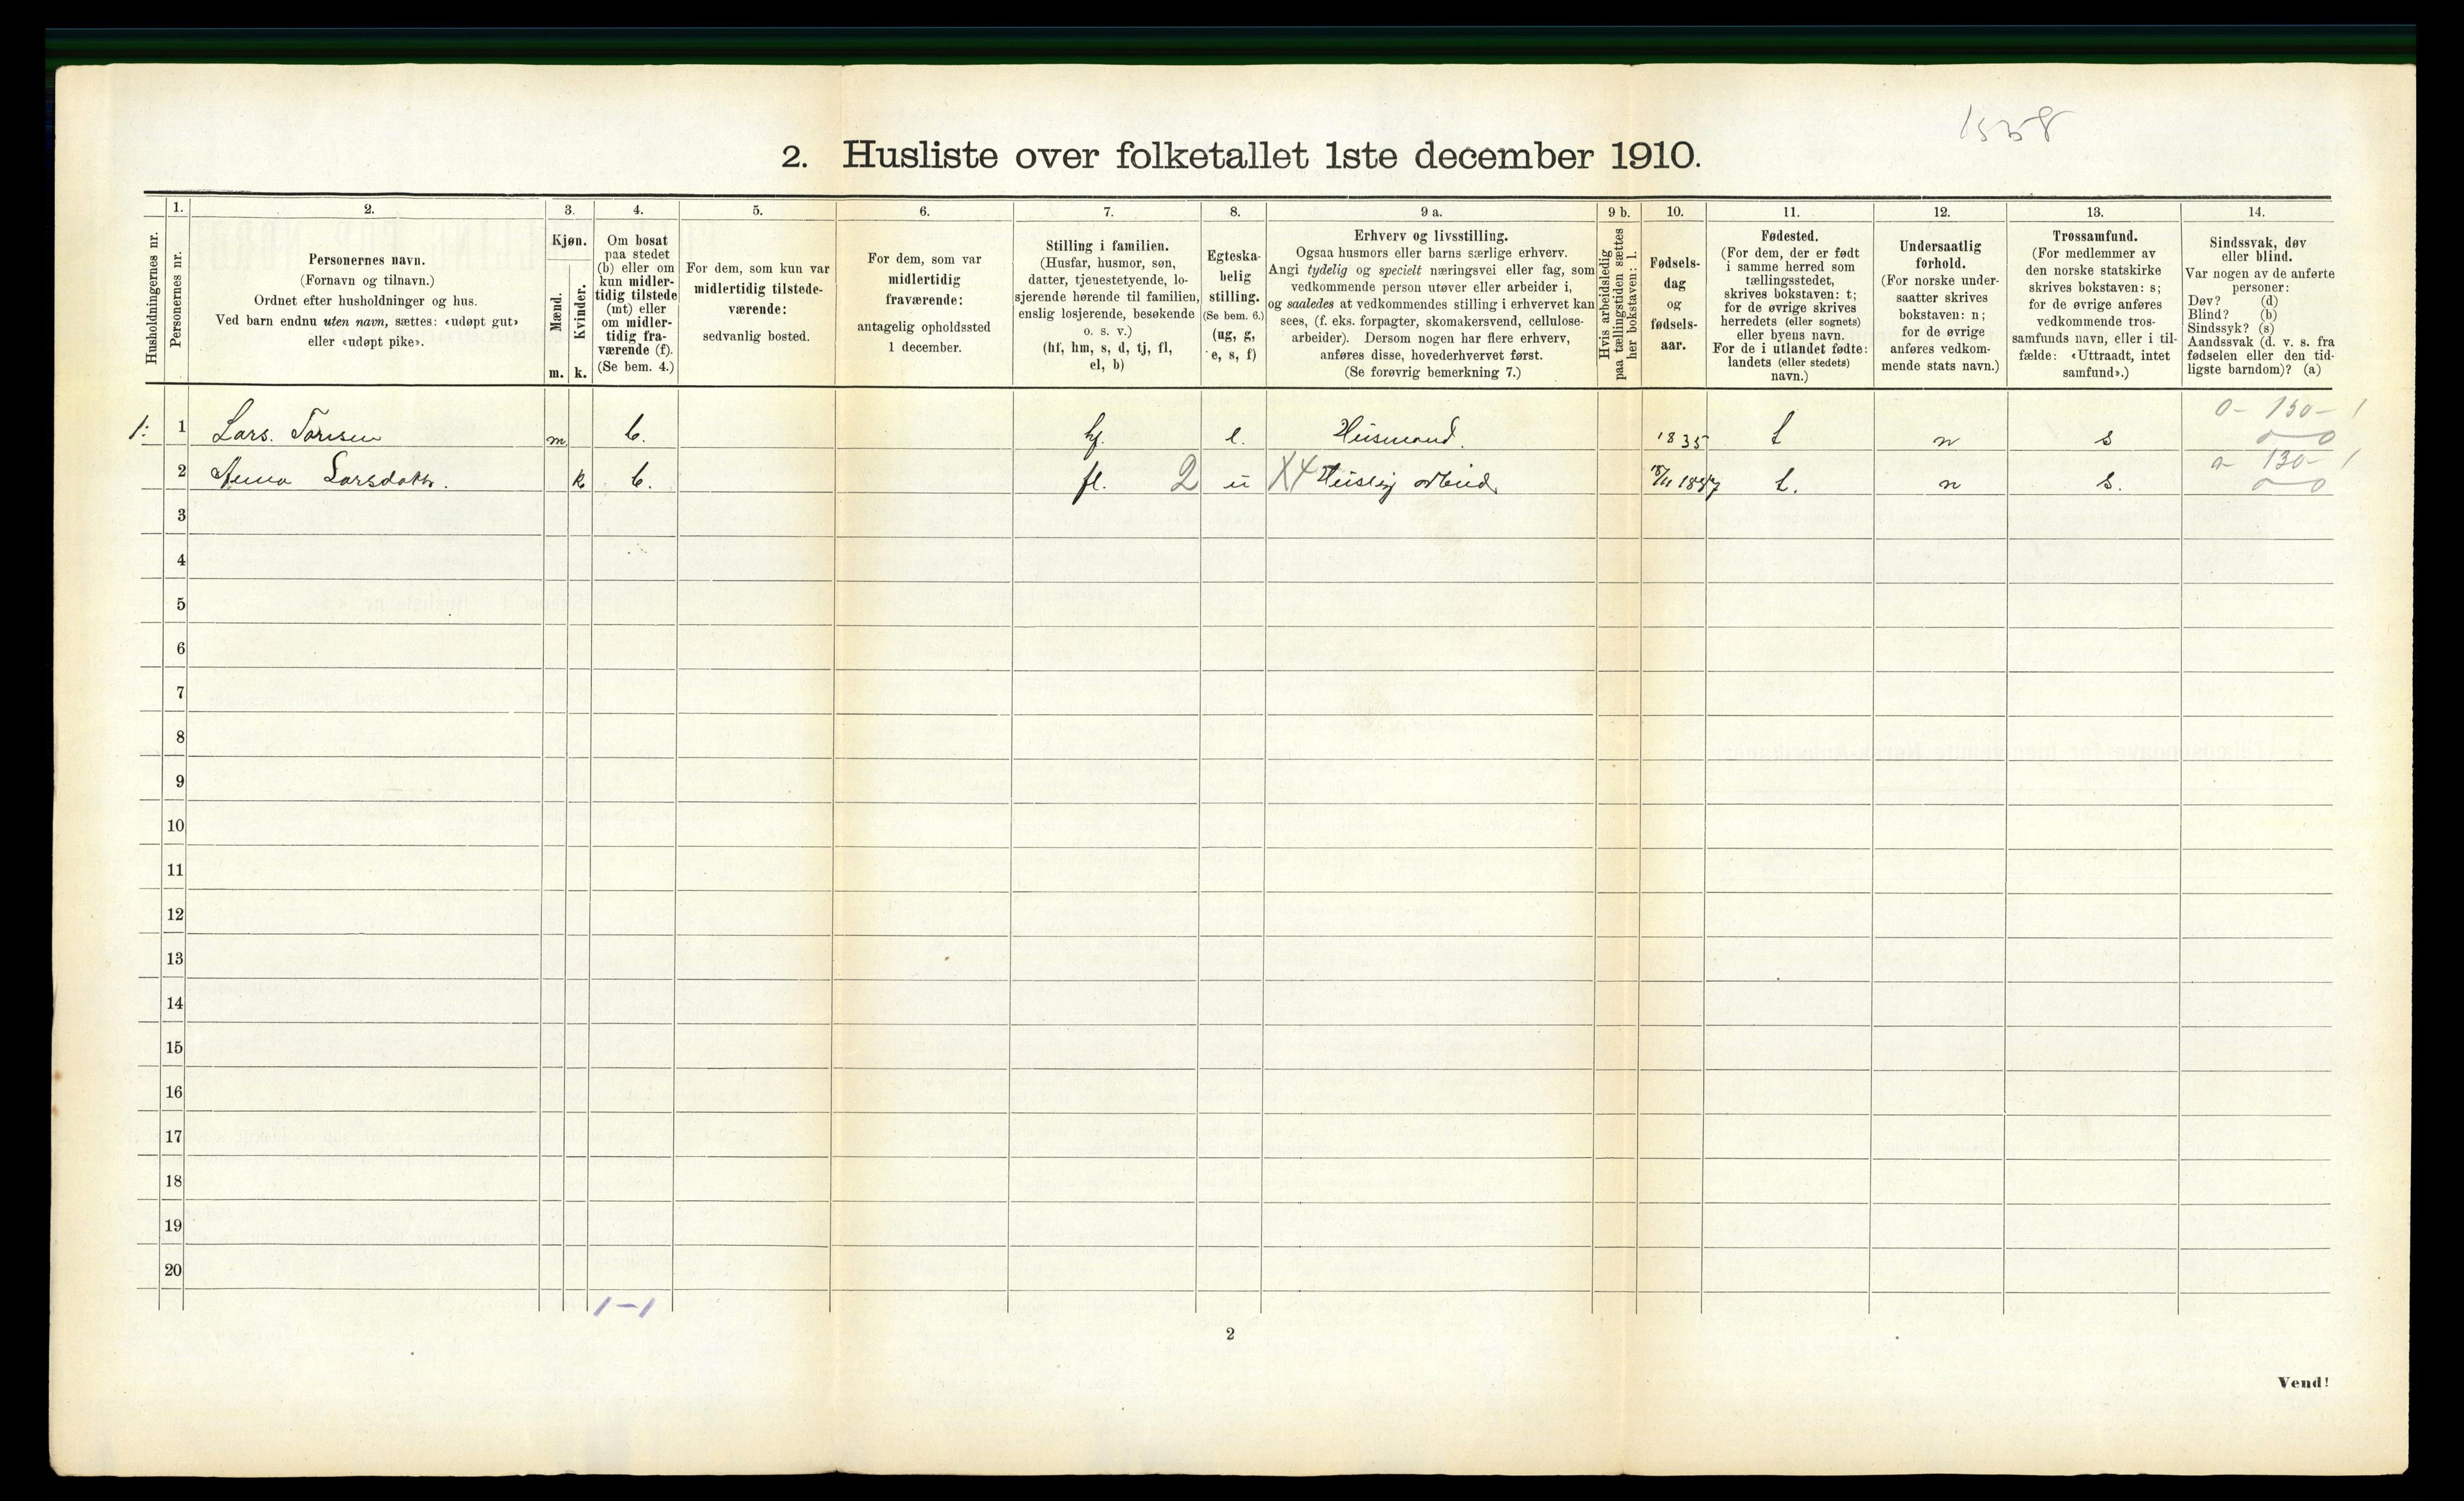 1558
2. Husliste over folketallet 1ste december 1910.
Husholdningernes nr.
1.
Personernes nr.
2.
Personernes navn.
(Fornavn og tilnavn.)
Ordnet efter husholdninger og hus.
Ved barn endnu uten navn, sættes: «udøpt gut»
eller «udøpt pike».
3.
Kjøn.
Mænd.
Kvinder.
m. k.
4.
Om bosat
paa stedet
(b) eller om
kun midler-
tidig tilstede
(mt) eller
om midler-
tidig fra-
værende (f).
(Se bem. 4.)
5.
For dem, som kun var
midlertidig tilstede-
værende:
sedvanlig bosted.
6.
For dem, som var
midlertidig
fraværende:
antagelig opholdssted
1 december.
7.
Stilling i familien.
(Husfar, husmor, søn,
datter, tjenestetyende, lo-
sjerende hørende til familien,
enslig losjerende, besøkende
o. s. v.)
(hf, hm, s, d, tj, fl,
el, b)
8.
Egteska-
belig
stilling.
(Se bem. 6.)
(ug, g,
e, s, f)
9 a.
Erhverv og livsstilling.
Ogsaa husmors eller barns særlige erhverv.
Angi tydelig og specielt næringsvei eller fag, som
vedkommende person utøver eller arbeider i,
og saaledes at vedkommendes stilling i erhvervet kan
sees, (f. eks. forpagter, skomakersvend, cellulose-
arbeider). Dersom nogen har flere erhverv,
anføres disse, hovederhvervet først.
(Se forøvrig bemerkning 7.)
9 b.
Hvis arbeidsledig
paa tællingstiden sættes
her bokstaven: l.
10.
Fødsels-
dag
og
fødsels-
aar.
11.
Fødested.
(For dem, der er født
i samme herred som
tællingsstedet,
skrives bokstaven: t;
for de øvrige skrives
herredets (eller sognets)
eller byens navn.
For de i utlandet fødte:
landets (eller stedets)
navn.)
12.
Undersaatlig
forhold.
(For norske under-
saatter skrives
bokstaven: n;
for de øvrige
anføres vedkom-
mende stats navn.)
13.
Trossamfund.
(For medlemmer av
den norske statskirke
skrives bokstaven: s;
for de øvrige anføres
vedkommende tros-
samfunds navn, eller i til-
fælde: «Uttraadt, intet
samfund».)
14.
Sindssvak, døv
eller blind.
Var nogen av de anførte
personer:
Døv? (d)
Blind? (b)
Sindssyk? (s)
Aandssvak (d. v. s. fra
fødselen eller den tid-
ligste barndom)? (a)
0 - 130 - 1
1: 1 Lars. Tarisen m b. hf. e. Husmand. 1835 t n s 0 0
0 - 130 - 1
2 Anna Larsdatter. k b. fl. 2 u X4 Huslig arbeid t. n s. 0 0
3
4
5
6
7
8
9
10
11
12
13
14
15
16
17
18
19
20
1 - 1
2
Vend!